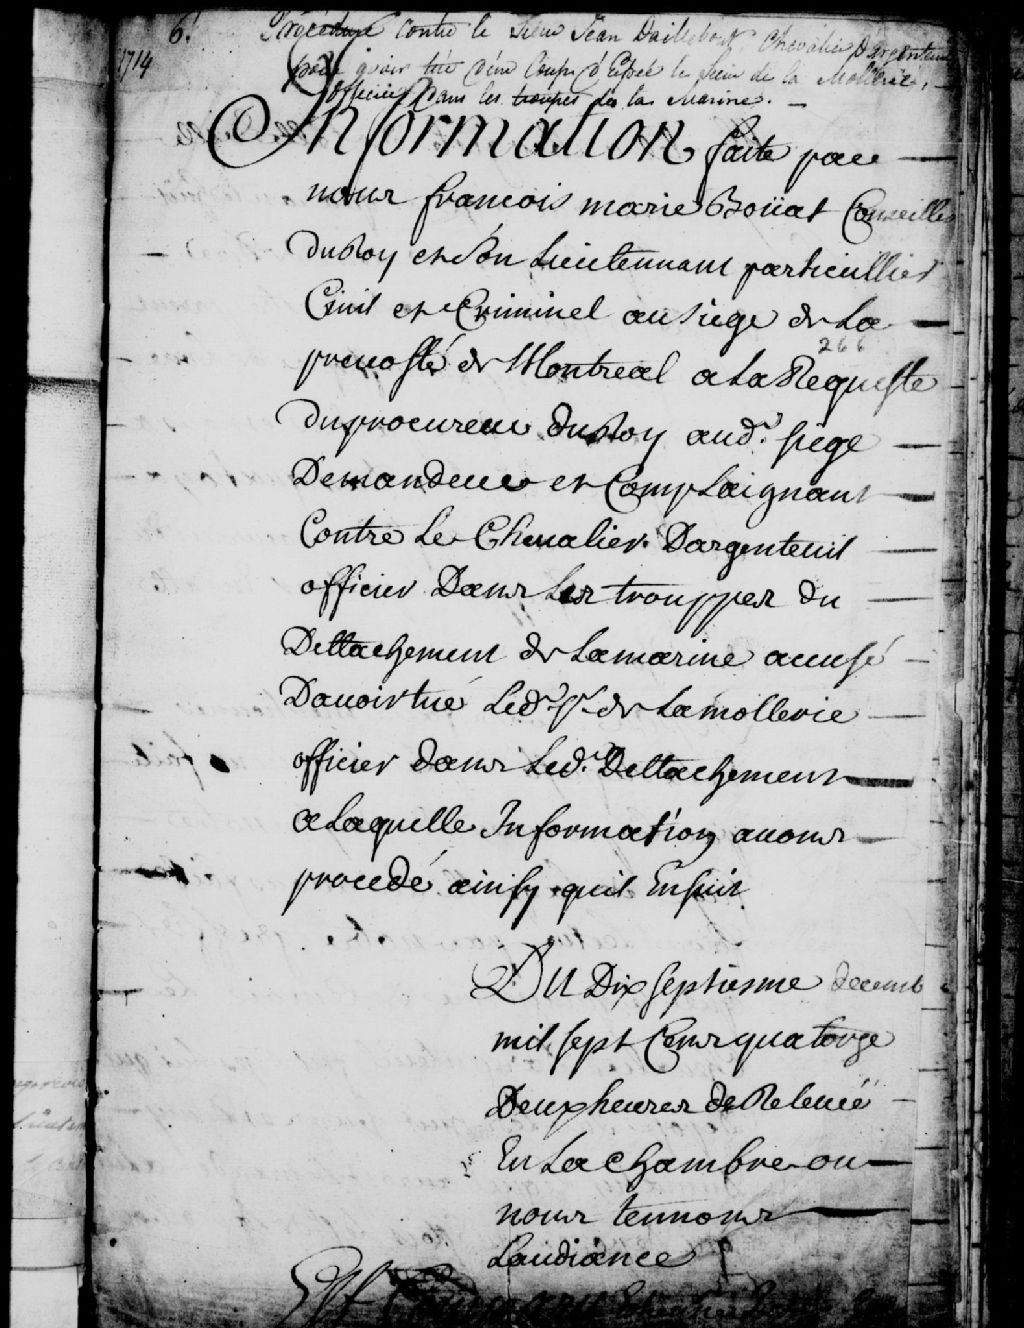 6.e Procedure contre le Sieur Jean Daillebout, Chevalier Dargenteuil
1714 pour avoir tué d'une Coup d'Epée le Sieur de la Mollerie,
officier dans les troupes de la Marine. —
Information faite par
nous francois marie Boüat Conseiller
du Roy et son Lieutennant particullier
Civil et Criminel au siege de La
prevosté de Montreal a La Requeste
266
du procureur du Roy aud.t siege
Demandeur et Complaignant
Contre Le Chevalier Dargenteuil
officier Dans Les trouppes du
Dettachement de Lamarine accusé
Davoir tué Led.t Sr. de Lamollerie
officier dans Led.t Dettachement
a Laquelle Information avons
procedé ainsy quil Ensuit
Du Dix septiesme decemb
mil sept Cens quatorze
Deux heures de Relevée
En La chambre ou
nous tennons
Laudiance
Est